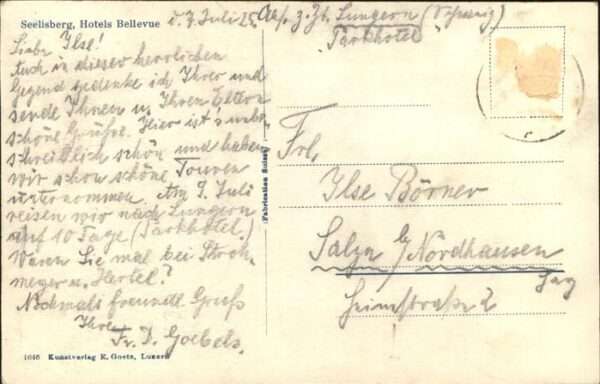 Seelisberg, Hotels Bellevue
d. 7. Juli 25.
Abs. z. Zt. Lungern (Schweiz)
"Parkhotel"
Liebe Ilse!
Auch in dieser herrlichen
Gegend gedenke ich Ihrer und
sende Ihnen u. Ihren Eltern
schöne Grüße. Hier ist's unbe-
schreiblich schön und haben
wir schon schöne Touren
unternommen. Am 9. Juli
reisen wir nach Lungern
auf 10 Tage (Parkhotel.)
Waren Sie mal bei Stroh-
meyer u. Hertel?
Nochmals freundl. Gruß
Ihre
Fr. D. Goebels.
1646 Kunstverlag E. Goetz, Luzern
Fabrication Suisse
Frl.
Ilse Börner
Salza b/Nordhausen
Harz
Heimstraße 2